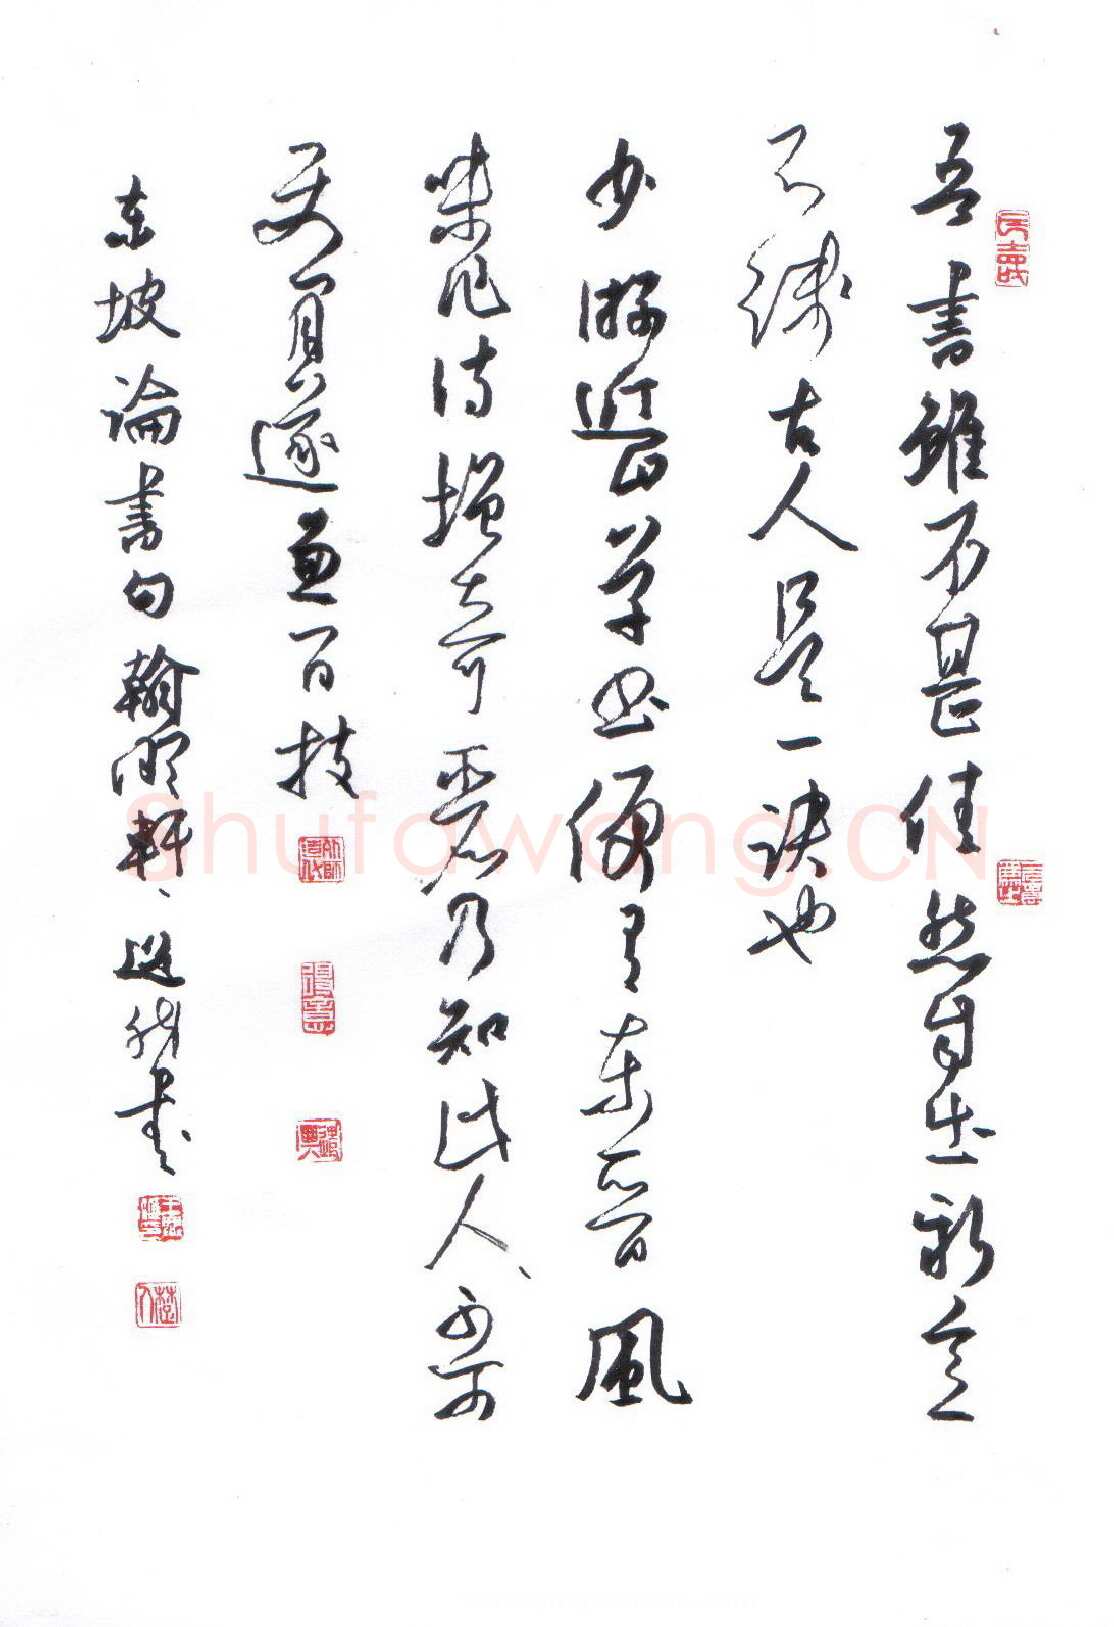 吾書雖不甚佳然自出新意
不踐古人是一快也
少游近日草書便有東晉風
味作詩增奇麗乃知此人不可
使閑遂兼百技
東坡論書句翰墨軒
書
Shufawang.CN